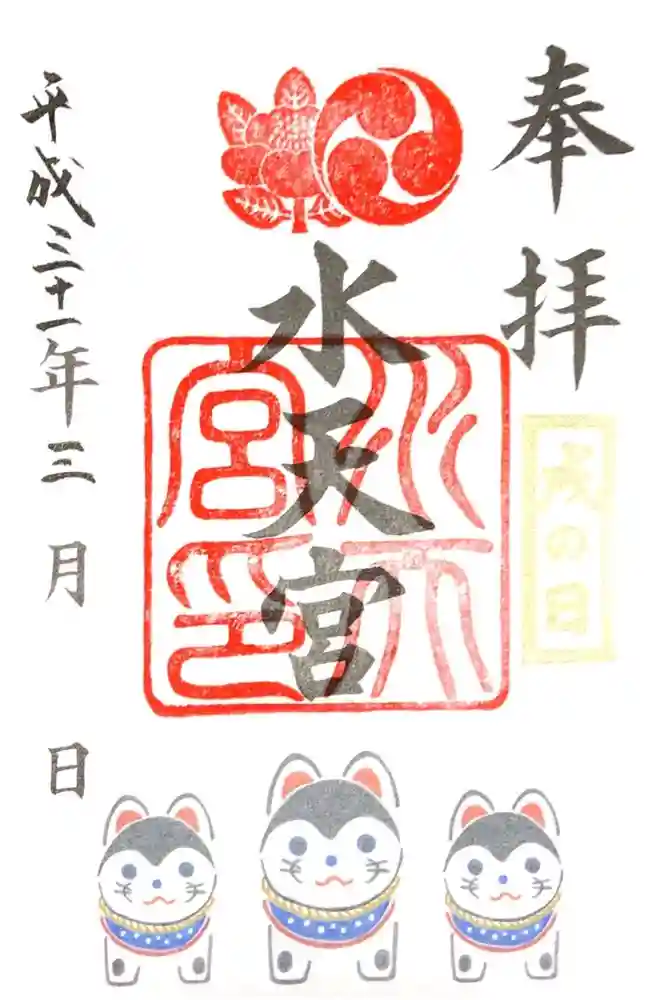 奉拝
戌の日
水天宮
水天宮印
平成三十一年三月 日